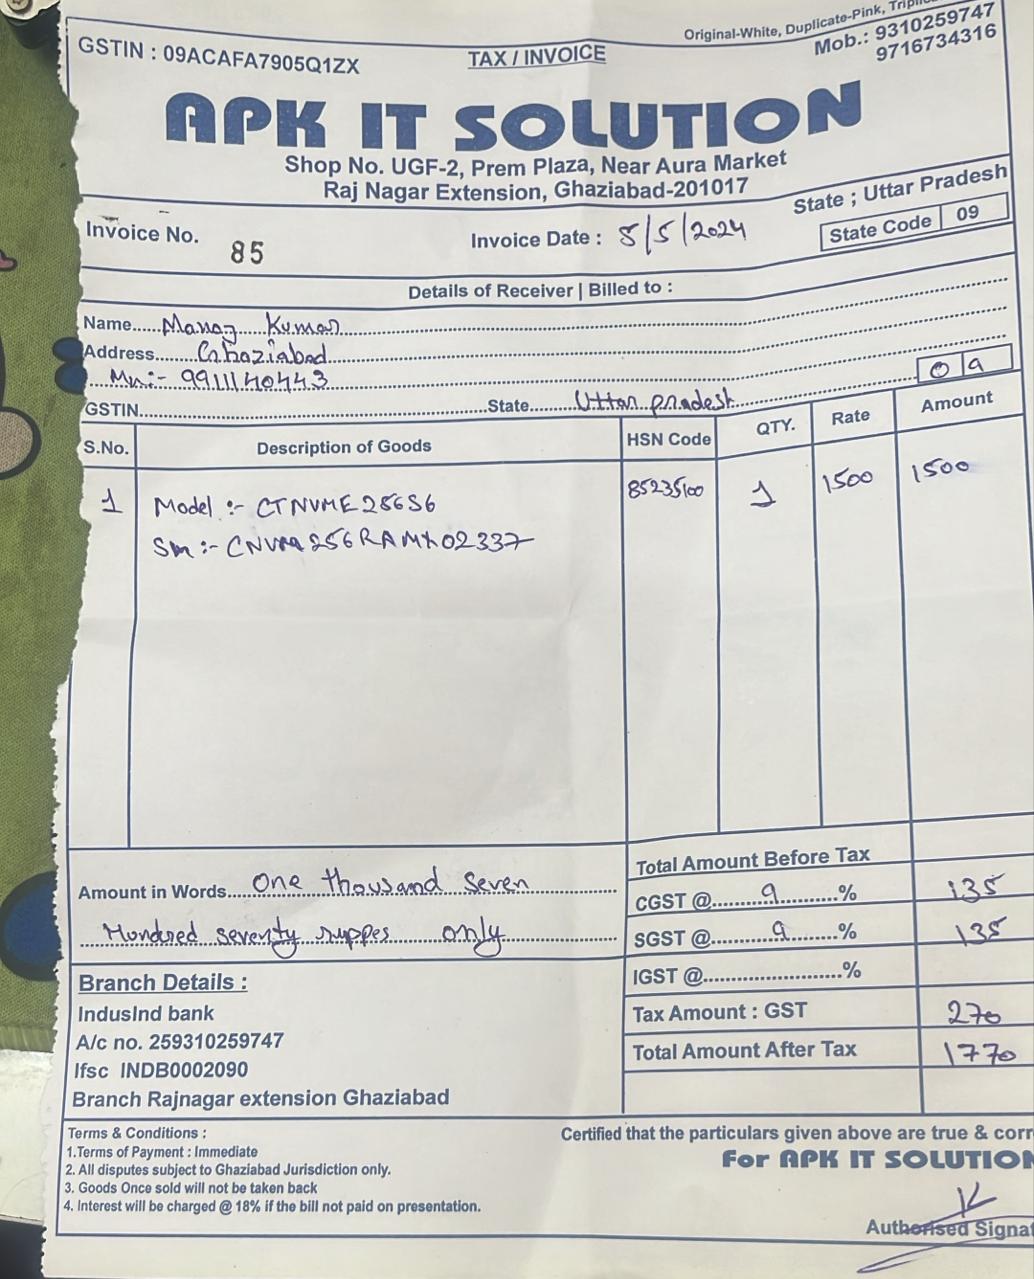 Original-White, Duplicate-Pink,
GSTIN : 09ACAFA7905Q1ZX
TAX / INVOICE
Mob.: 9310259747
9716734316
APK IT SOLUTION
Shop No. UGF-2, Prem Plaza, Near Aura Market
Raj Nagar Extension, Ghaziabad-201017
State ; Uttar Pradesh
State Code 09
Invoice No. 85
Invoice Date : 8/5/2024
Details of Receiver | Billed to :
Name..... Manoj Kumar
Address....... Ghaziabad
Mn:- 9911140443
09
GSTIN.......... State....... Uttar pradesh
S.No. Description of Goods HSN Code QTY. Rate Amount
1 Model :- CTNVME256S6 85235100 1 1500 1500
Sn :- CNVM256RAMX02337
Total Amount Before Tax
Amount in Words.... One thousand Seven
CGST @....... 9 ..........% 135
Hundred seventy ruppes only
SGST @....... 9 .......% 135
IGST @.......................%
Branch Details :
IndusInd bank
Tax Amount : GST 270
A/c no. 259310259747
Total Amount After Tax 1770
Ifsc INDB0002090
Branch Rajnagar extension Ghaziabad
Terms & Conditions :
1.Terms of Payment : Immediate
2. All disputes subject to Ghaziabad Jurisdiction only.
3. Goods Once sold will not be taken back
4. Interest will be charged @ 18% if the bill not paid on presentation.
Certified that the particulars given above are true & corr
For APK IT SOLUTION
Authorised Signa